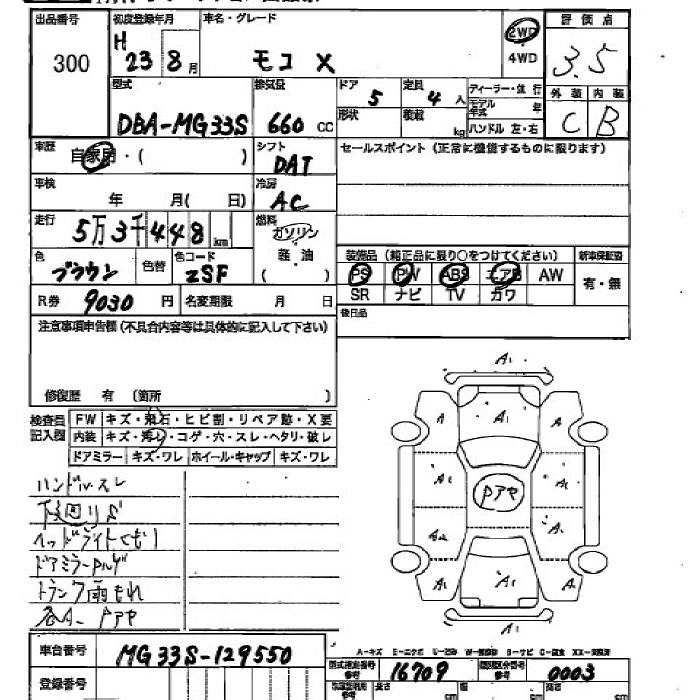 出品番号 初度登録年月 車名・グレード 評価点
300 H 23 8月 モコ X 2WD 4WD 3.5
型式 排気量 ドア 定員 ディーラー・並行 外装 内装
DBA-MG33S 660 CC 5 4人 モデル年式 年 C B
形状 積載 kg ハンドル 左・右
車歴 自家用・( ) シフト DAT セールスポイント(正常に機能するものに限ります)
車検 年 月( 日) 冷房 AC
走行 5万3千448km 燃料 ガソリン 軽・油 ( )
装備品(純正品に限り○をつけてください) 新車保証書
色 ブラウン 色替 色コード ZSF
PS PW ABS エアB AW 有・無
SR ナビ TV カワ
R券 9030円 名変期限 月 日
後日品
注意事項申告欄(不具合内容等は具体的に記入して下さい)
修復歴 有 (箇所 )
検査員記入欄 FW キズ・飛石・ヒビ割・リペア跡・X要
内装 キズ・汚れ・コゲ・穴・スレ・ヘタリ・破レ
ドアミラー キズ・ワレ ホイール・キャップ キズ・ワレ
ハンドルスレ
下廻りS
ヘッドライトくもり
ドアミラー
トランク雨もれ
A1
A A1 A
A1 Pアセ A1
A2 A1
A A1 A
A1
A-キズ E-エクボ U-凹み W-補修跡 S-サビ C-腐食 XX-交換済
車台番号 MG33S-129550 型式指定番号 16709 類別区分番号 0003
登録番号 長さ cm 幅 cm 高さ cm